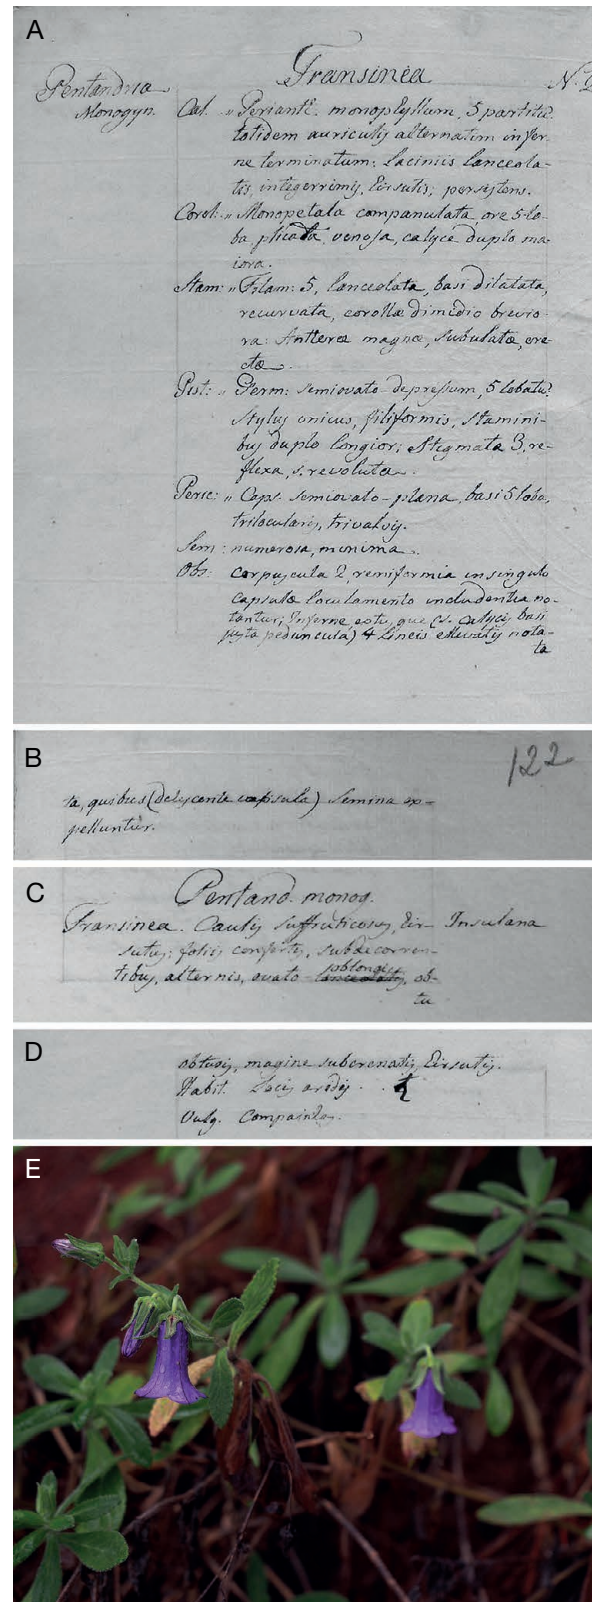 A
Fransinea
Pentandria
Monogyn.
Cal. " Perianth. monophyllum, 5 partitu
totidem auriculis alternatim infer-
ne terminatum: laciniis lanceola-
tis, integerrimis, hirsutis, persistens.
Corol: " Monopetala companulata, ore 5 lo-
ba plicata, venosa, calyce duplo ma-
iora.
Stam: " Filam: 5, lanceolata, basi dilatata,
recurvata, corollæ dimidio brevio-
ra: Antheræ magnæ, subulatæ, ere-
ctæ.
Pist: " Germ: semiovato-depressum, 5 lobatu
stylus unicus, filiformis, stamini-
bus duplo longior; stigmata 3, re-
flexa, s. revoluta.
Peric: " Caps. semiovato-plana, basi 5 loba,
trilocularis, trivalvis.
Sem: numerosa, minima.
Obs: corpuscula 2 reniformia in singulo
capsulæ loculamento includentia no-
tantur; Inferne estu, que (s. calycis basi
juxta peduncula) 4 lineis elevatis nota-
ta
B
122
ta, quibus (dehiscente capsula) semina ex-
pelluntur.
C
Pentand. monog.
Fransinea. Caulis suffruticosus, hir- Insulana
sutus: foliis confertis, subdecurren-
tibus, alternis, ovato-oblongis lanceolatis, ob-
tu
D
obtusis, magine subcrenatis, hirsutis.
Habit. Locis aridis . .
Vulg. Compainha.
E